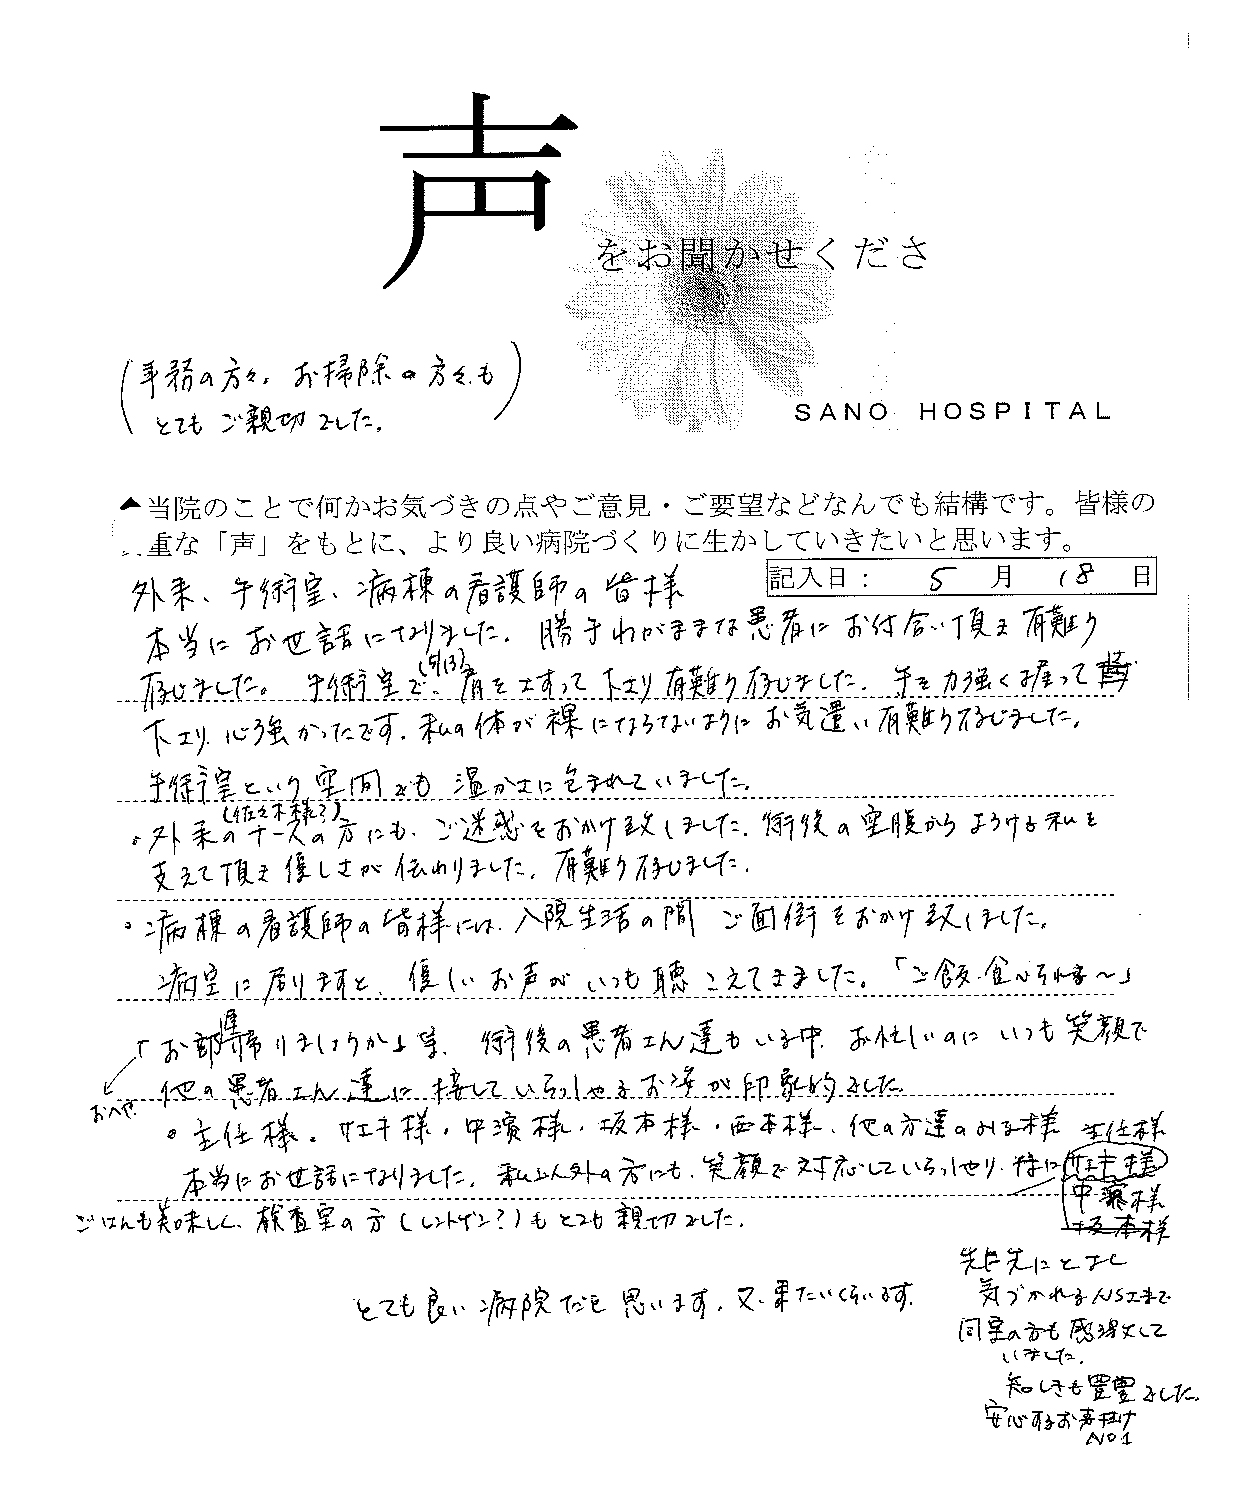 声
をお聞かせくださ
(事務の方々、お掃除の方々も
とてもご親切でした。)
SANO HOSPITAL
当院のことで何かお気づきの点やご意見・ご要望などなんでも結構です。皆様の
重な「声」をもとに、より良い病院づくりに生かしていきたいと思います。
記入日: 5 月 18 日
外来、手術室、病棟の看護師の皆様
本当にお世話になりました。勝手わがままな患者にお付合い頂き有難り
存じました。手術室で、(5/13)肩をさすって下さり有難り存じました。手を力強く握って
下さり、心強かったです。私の体が裸にならないようにお気遣い有難り存じました。
手術室という空間でも温かさに包まれていました。
。外来の(佐々木様?)ナースの方にも、ご迷惑をおかけ致しました。術後の空腹からよろける私を
支えて頂き優しさが伝わりました。有難り存じました。
。病棟の看護師の皆様には、入院生活の間 ご面倒をおかけ致しました。
病室に居りますと、優しいお声がいつも聴こえてきました。「ご飯、食べられる〜」
「お部屋帰りましょうか」等、術後の患者さん達もいる中、お忙しいのにいつも笑顔で
おへや
他の患者さん達に接していらっしゃるお姿が印象的でした。
。主任様。サエキ様・中濱様・坂本様・西本様、他の方達のみな様 主任様
本当にお世話になりました。私以外の方にも、笑顔で対応していらっしゃり、特にサエキ様
中濱様
坂本様
ごはんも美味しく、検査室の方(レントゲン?)もとても親切でした。
先に先にとよく
気づかれるNSさまで
同室の方も感謝して
いました。
知しきも豊富でした。
安心するお声掛け
NO1
とても良い病院だと思います。又、来たいくらいです。